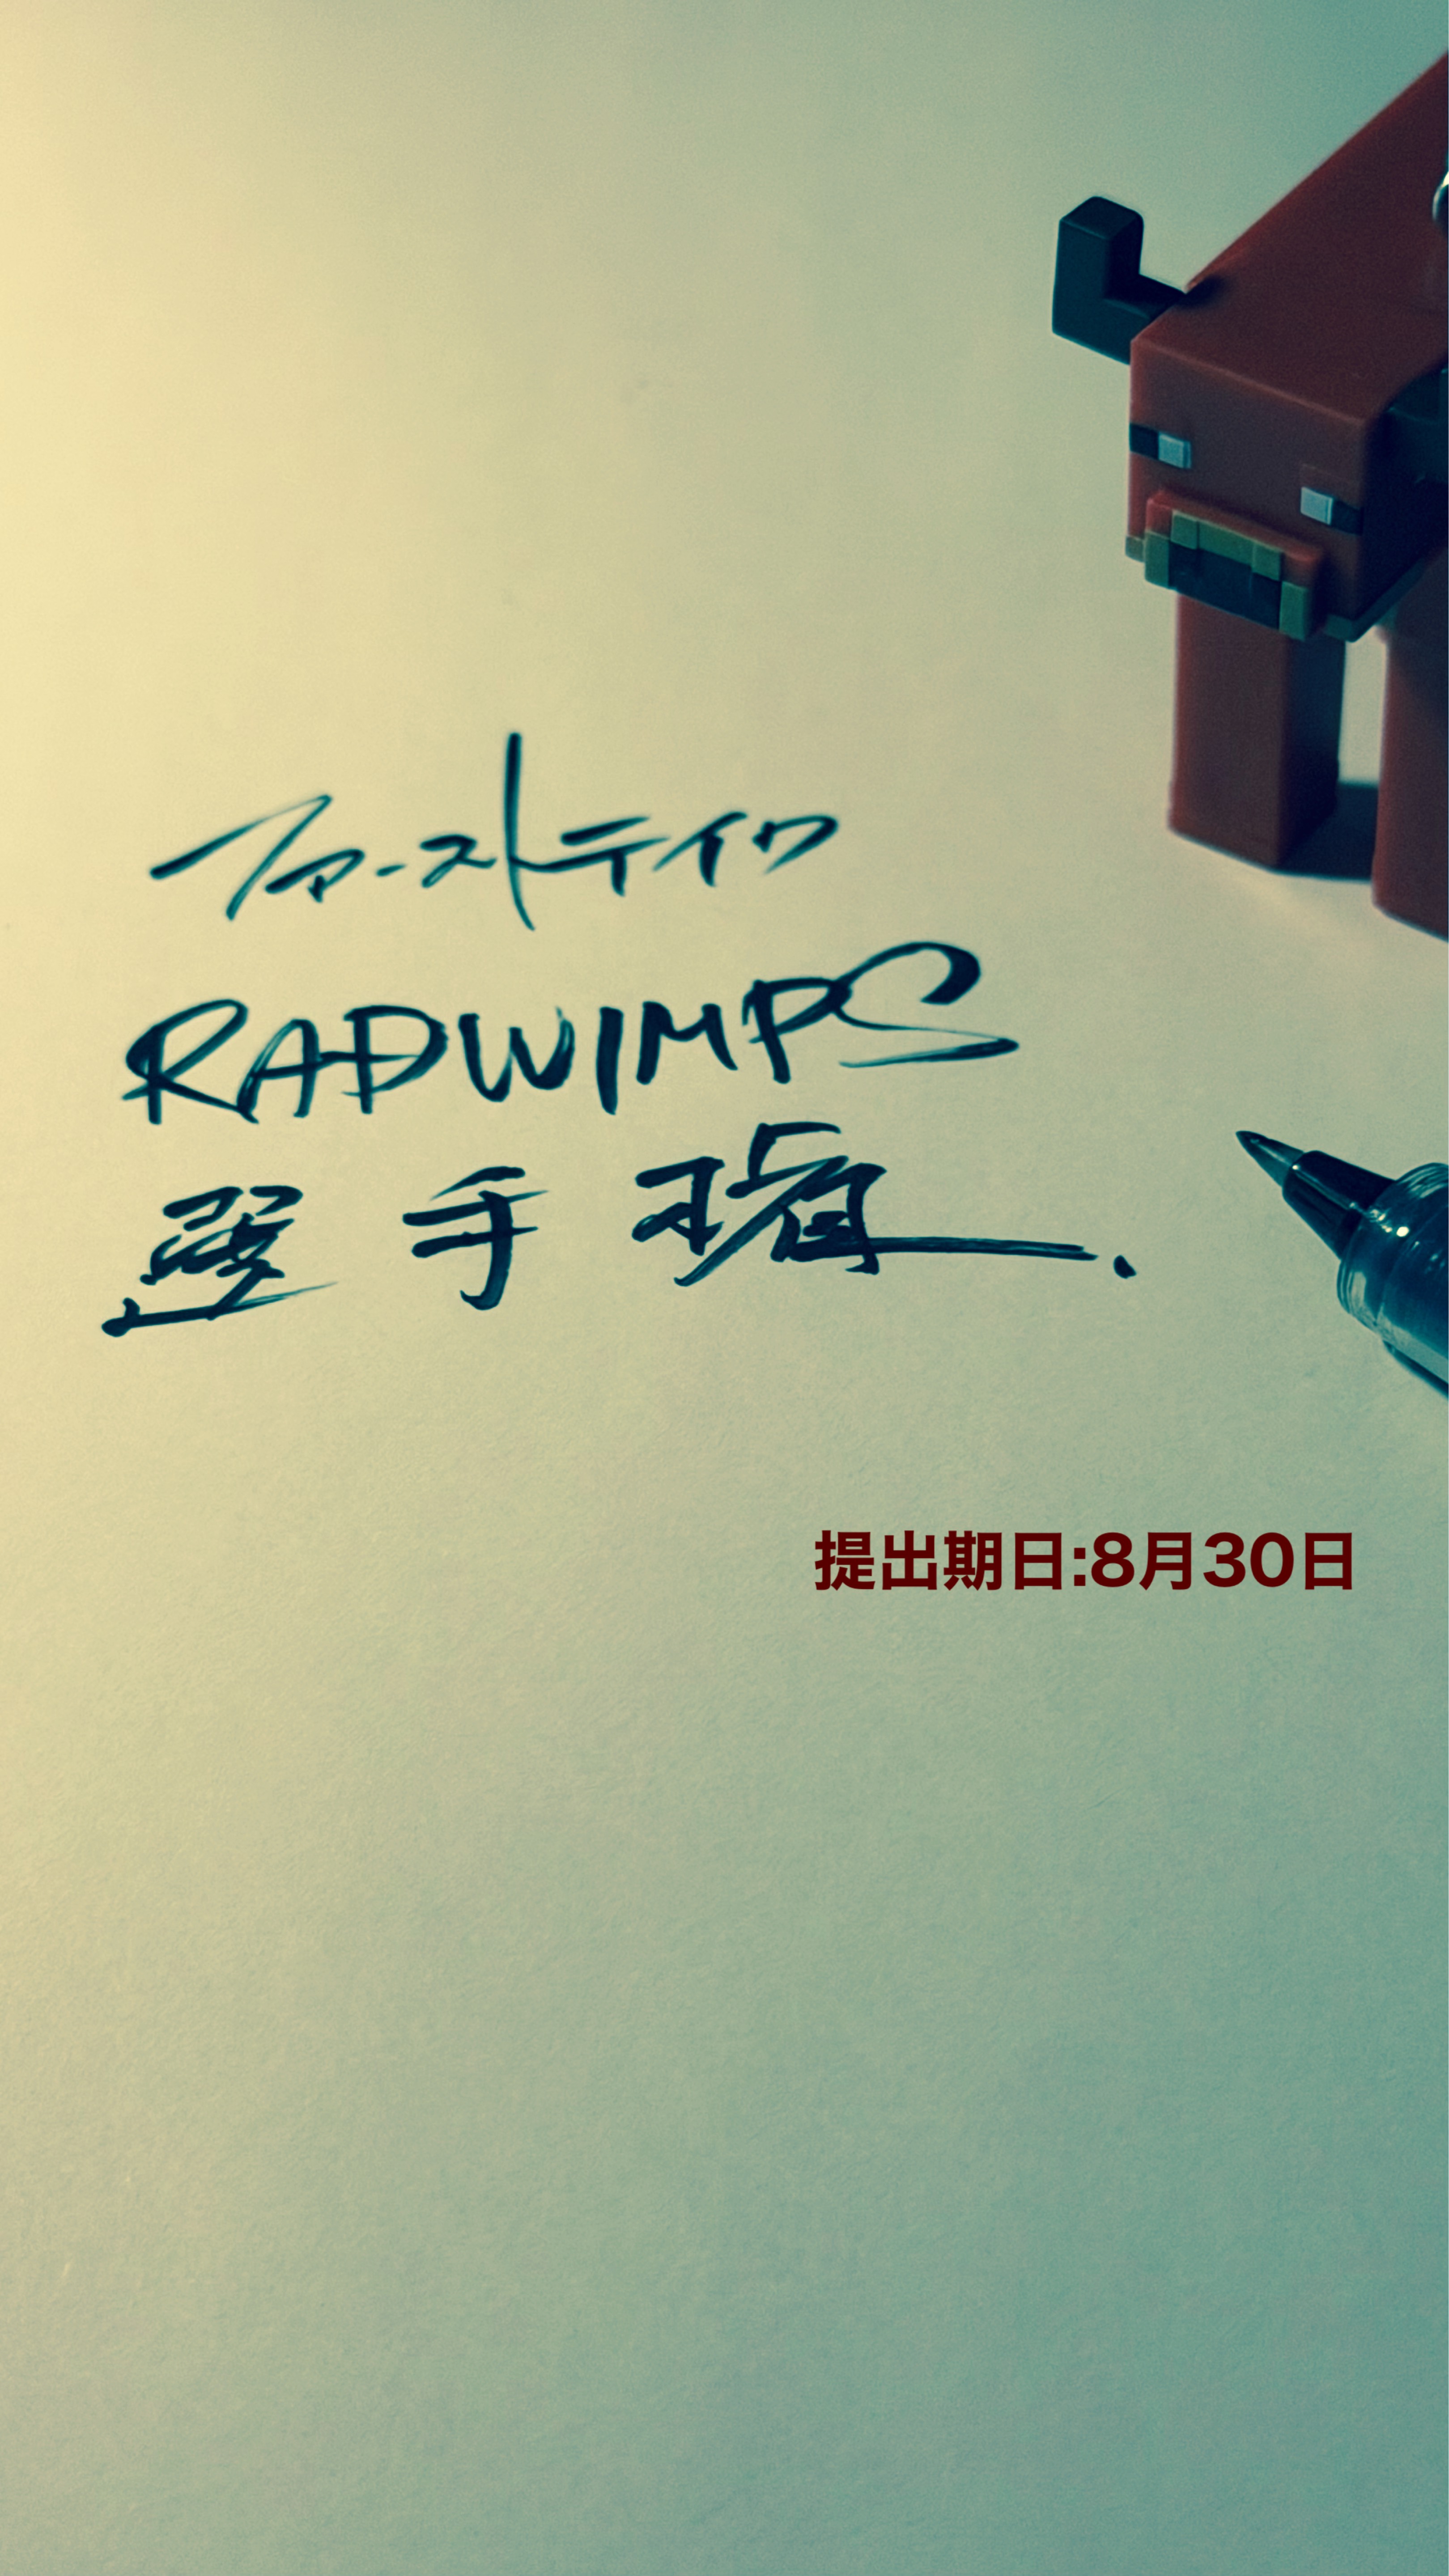 ファーストテイク
RADWIMPS
選手権.
提出期日:8月30日